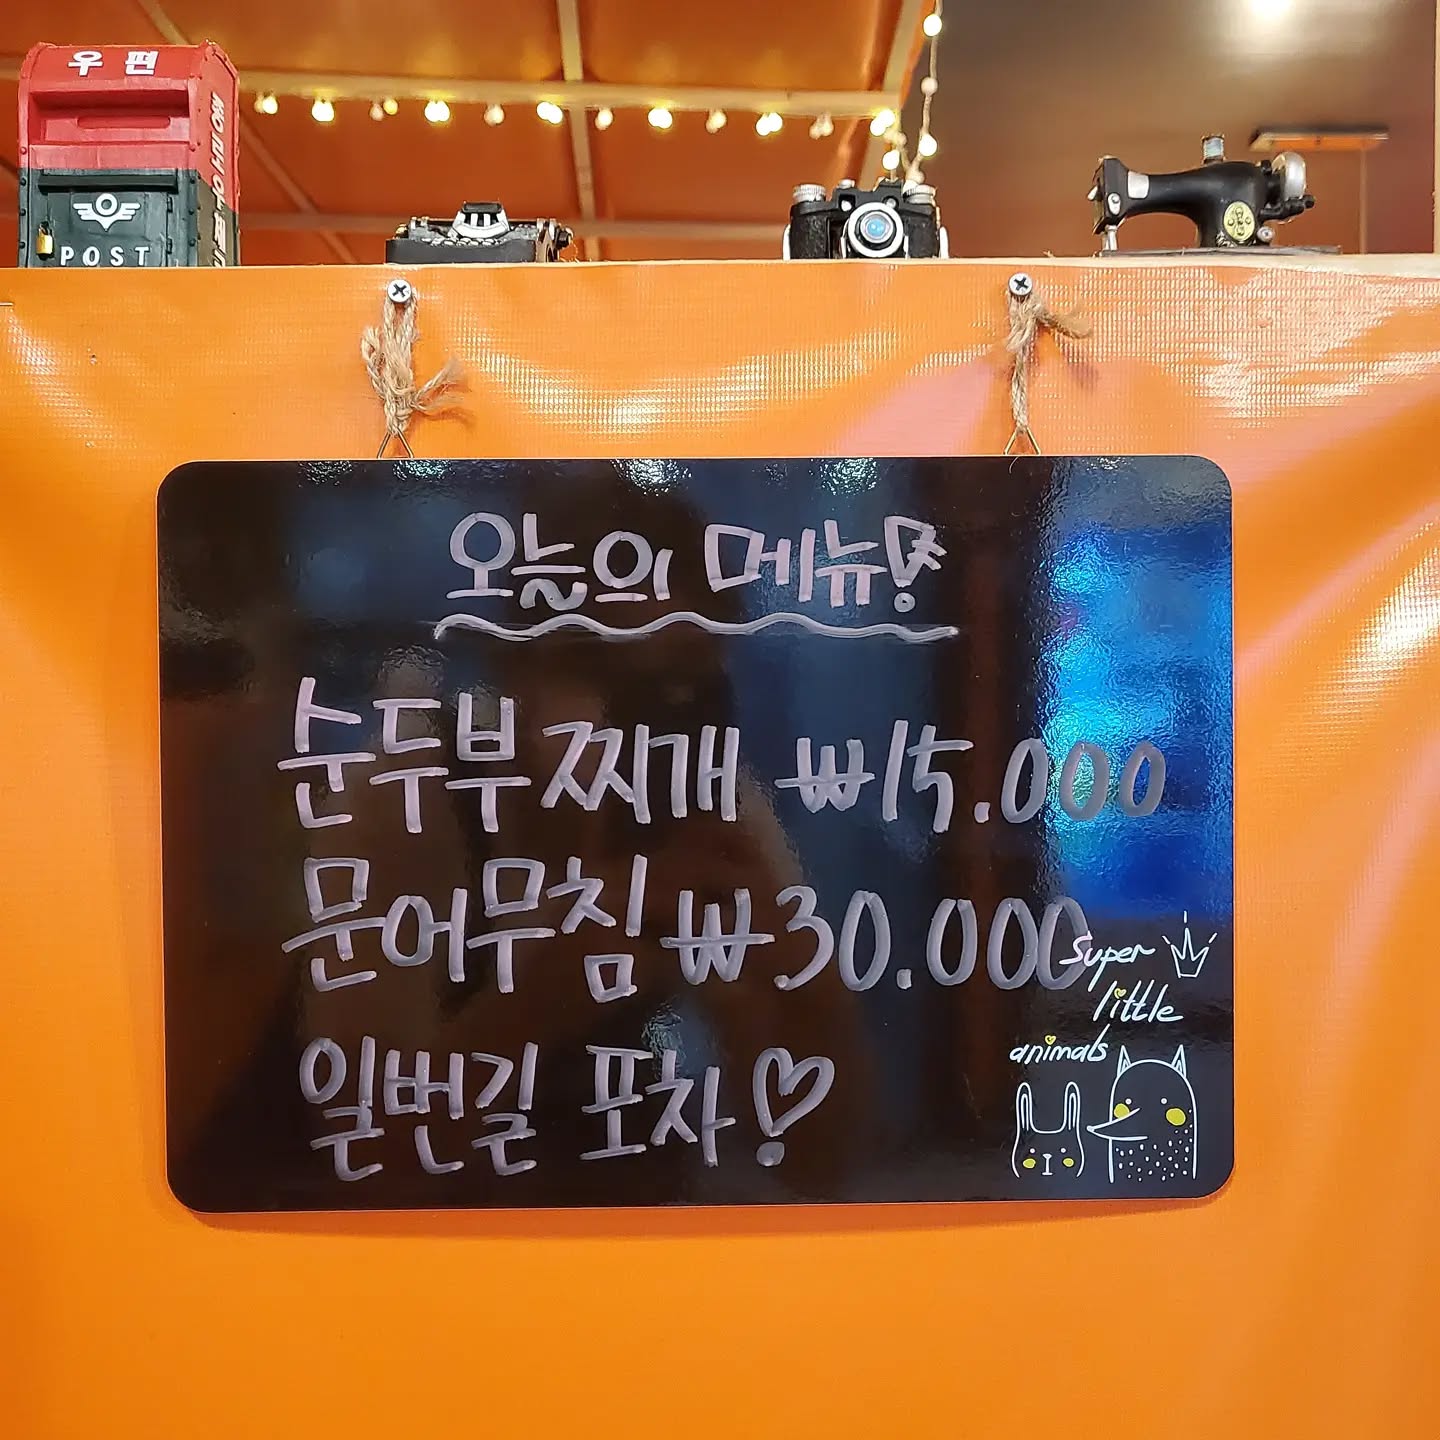 우편
POST
오늘의 메뉴!
순두부찌개 ₩15.000
문어무침 ₩30.000
일번길 포차!
super
little
animals